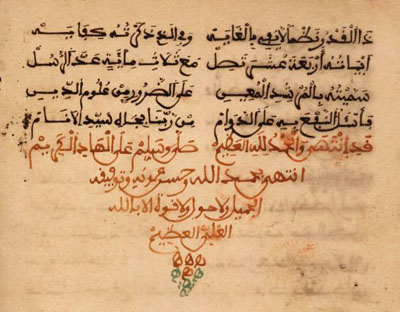 ذا القدر نظما لا يفي بالغايه وفي الذي ذكرته كفايه
ابياته اربعة عشر تصل مع ثلاثمائة عد الرسل
سميته بالمرشد المعين على الضروري من علوم الدين
فاسئل النفع به على الدوام من ربنا بجاه سيد الانام
قد انتهى والحمد لله العظيم صلى وسلم على الهادي الكريم
انتهى بحمد الله وحسن عونه وتوفيقه
الجميل ولا حول ولا قوة الا بالله
العلي العظيم